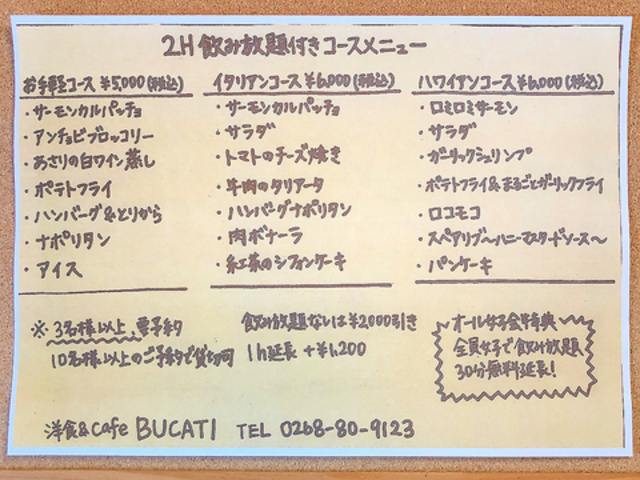 2H 飲み放題付きコースメニュー
お手軽コース ¥5,000(税込)
・サーモンカルパッチョ
・アンチョビブロッコリー
・あさりの白ワイン蒸し
・ポテトフライ
・ハンバーグ&とりから
・ナポリタン
・アイス
イタリアンコース ¥6,000(税込)
・サーモンカルパッチョ
・サラダ
・トマトのチーズ焼き
・牛肉のタリアータ
・ハンバーグナポリタン
・肉ボナーラ
・紅茶のシフォンケーキ
ハワイアンコース ¥6,000(税込)
・ロミロミサーモン
・サラダ
・ガーリックシュリンプ
・ポテトフライ&まるごとガーリックフライ
・ロコモコ
・スペアリブ〜ハニーマスタードソース〜
・パンケーキ
※3名様以上、要予約
10名様以上のご予約で貸切可
飲み放題ないは¥2,000引き
1h延長 +¥1,200
オール女子会特典
全員女子で飲み放題
30分無料延長!
洋食&cafe BUCATI TEL 0268-80-9123